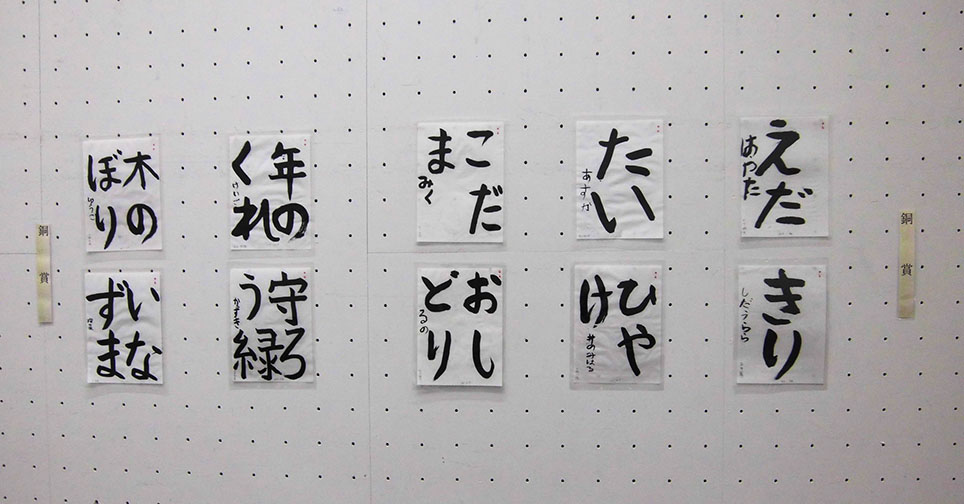 銅賞
えだ
はやた
きり
たい
あすか
ひや
け
こだ
ま
みく
おし
どり
るの
年の
くれ
けいご
守ろ
う緑
かずき
木の
ぼり
ゆうご
いな
ずま
銅賞